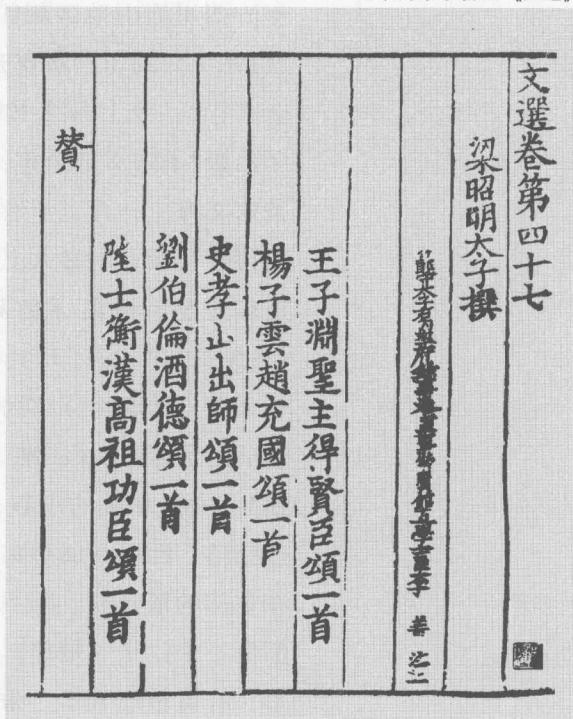 文選卷第四十七
梁昭明太子撰
李善注
王子淵聖主得賢臣頌一首
楊子雲趙充國頌一首
史孝山出師頌一首
劉伯倫酒德頌一首
陸士衡漢高祖功臣頌一首
贊